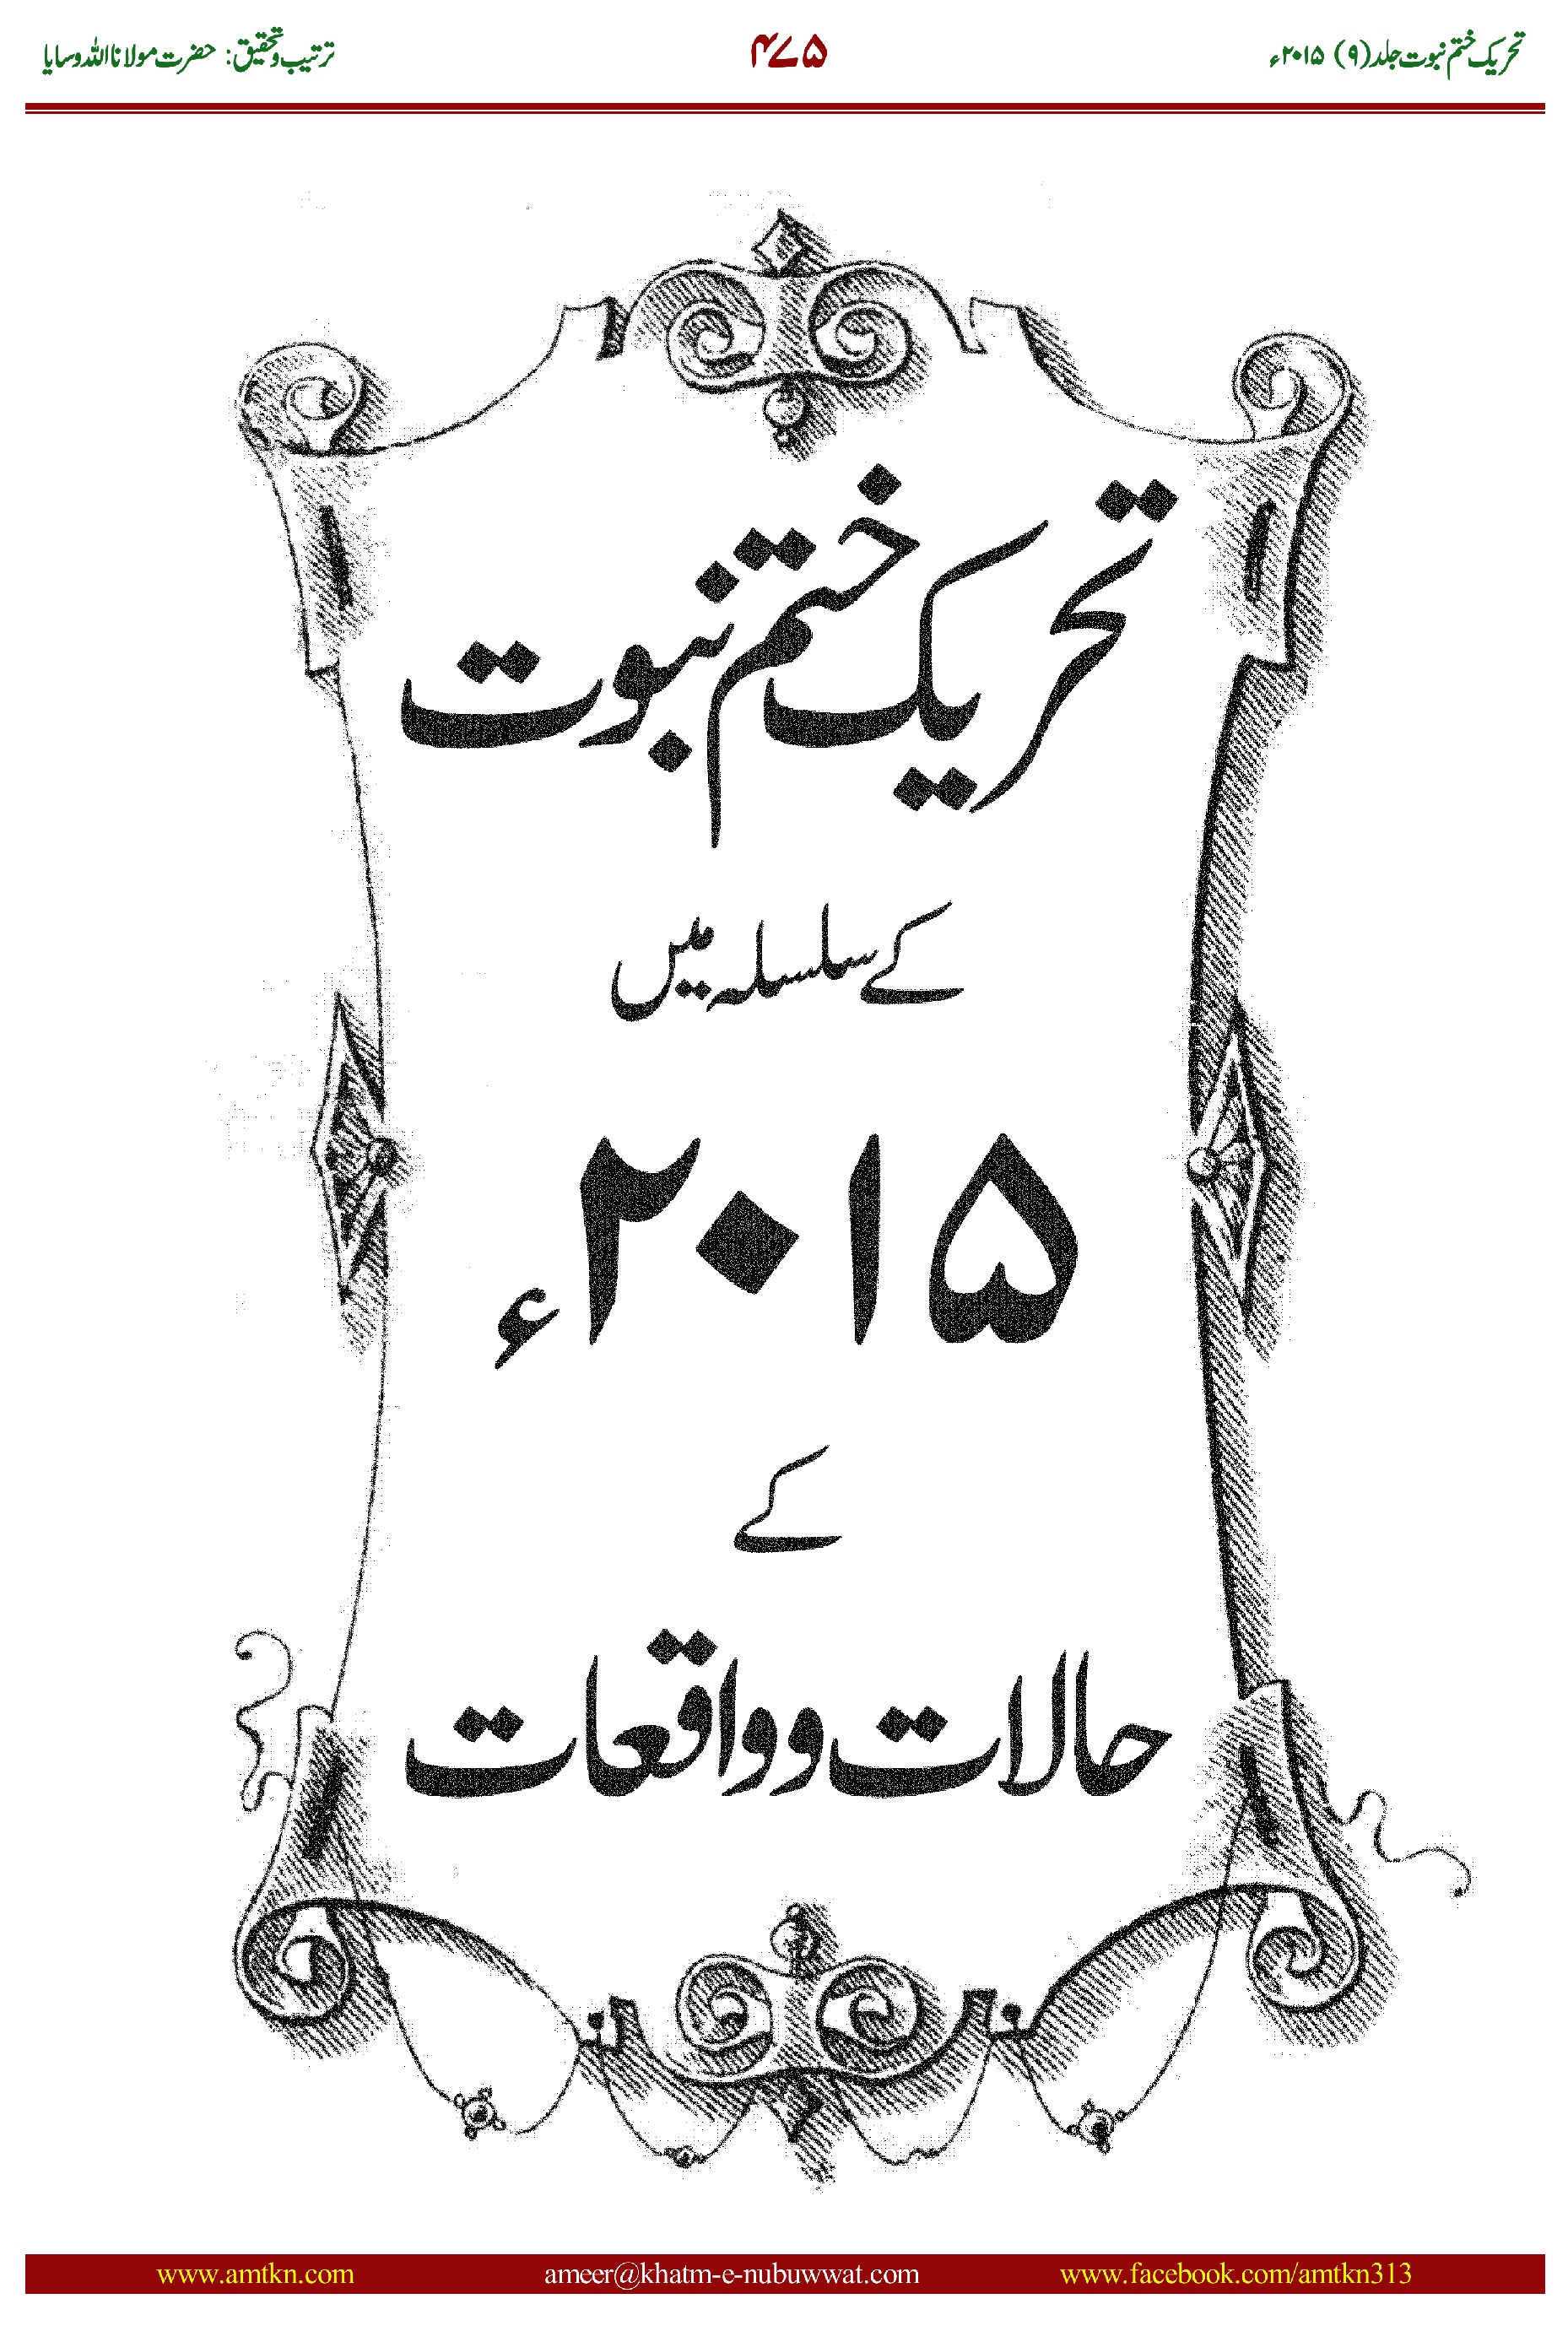 تحریک ختم نبوت جلد (۹) ۲۰۱۵ء
۴۷۵
ترتیب و تحقیق: حضرت مولانا اللہ وسایا
تحریک ختم نبوت
کے سلسلہ میں
۲۰۱۵ء
کے
حالات و واقعات
www.amtkn.com
ameer@khatm-e-nubuwwat.com
www.facebook.com/amtkn313